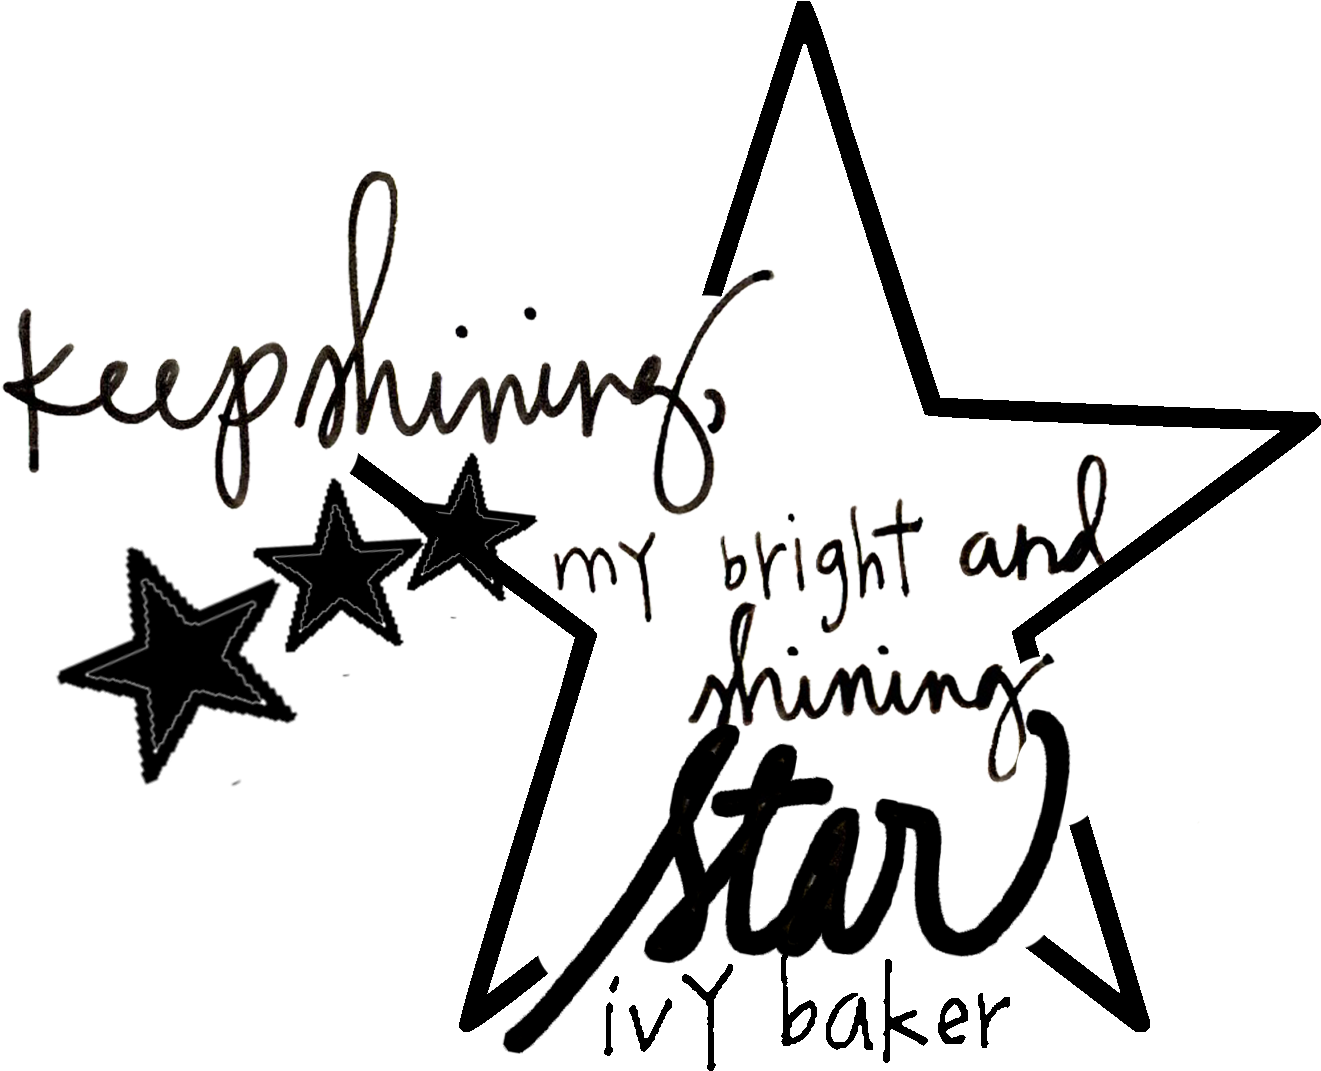 keep shining,
my bright and
shining
star
ivy baker